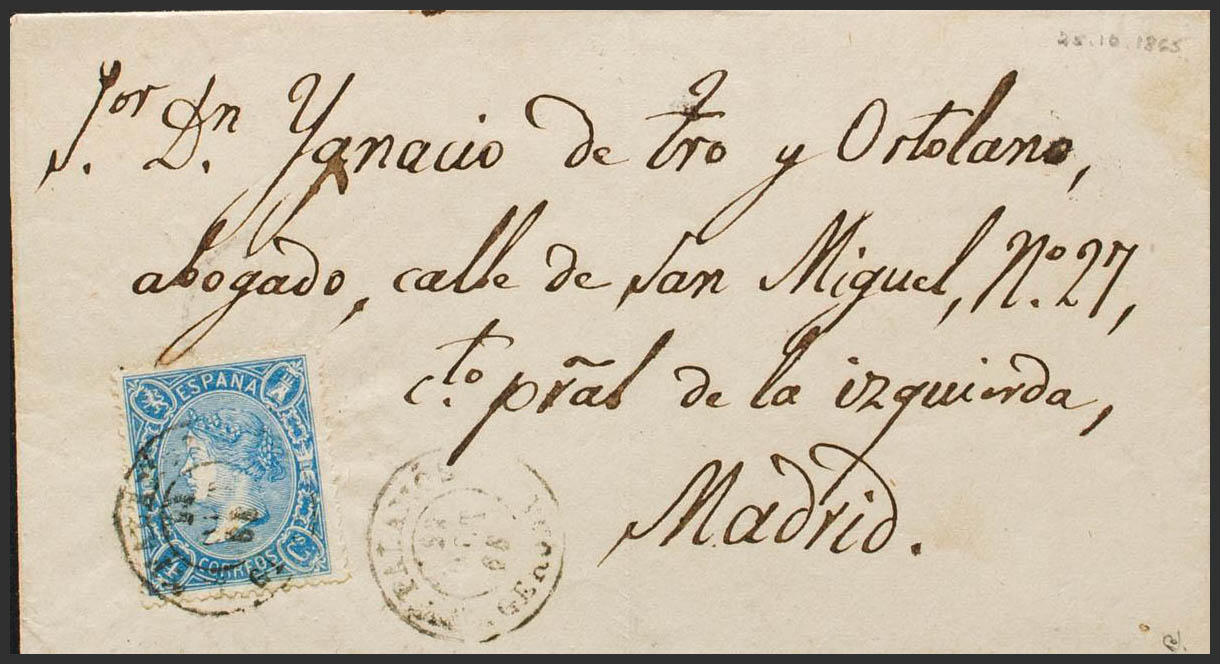 25.10.1865
Sor. Dn. Ygnacio de Tro y Ortolano,
abogado, calle de San Miguel, No. 27,
cto. pral de la izquierda,
Madrid.
ESPAÑA
4 Cs
CORREOS
GERONA